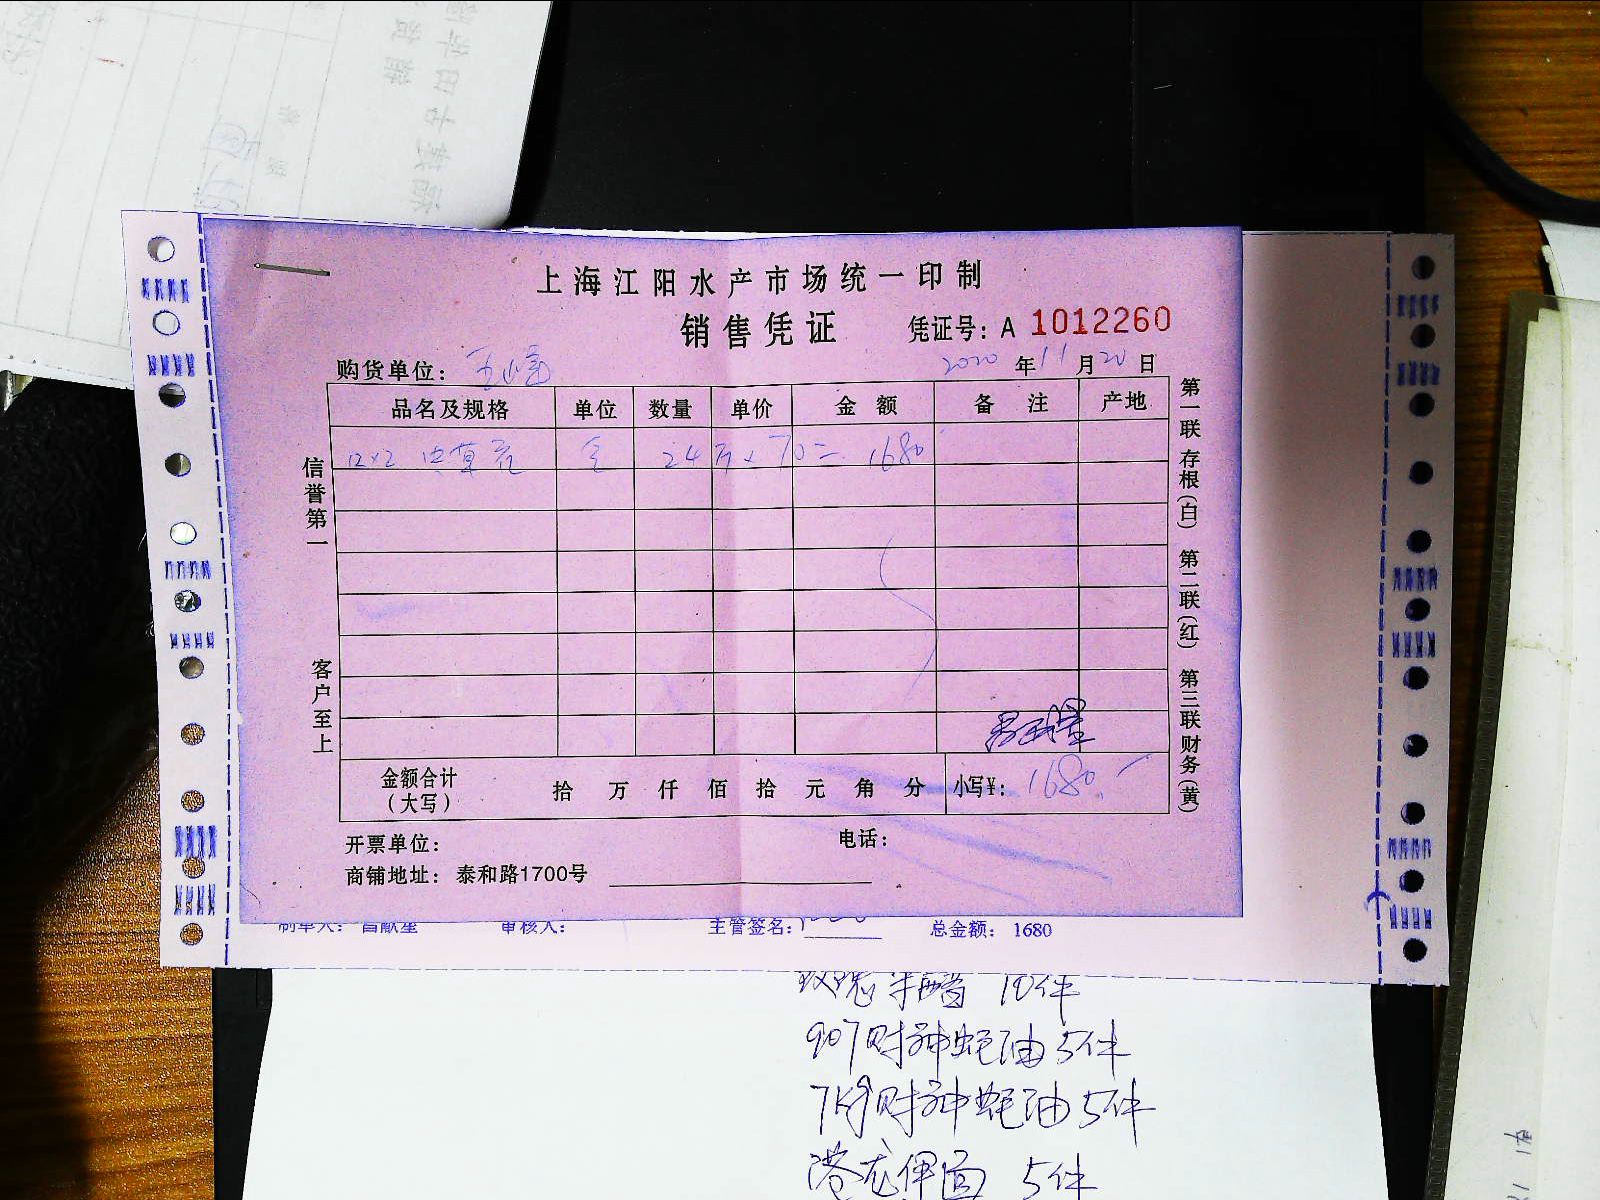 上海江阳水产市场统一印制
销售凭证 凭证号：A 1012260
购货单位： 2020 年 11 月 20 日
品名及规格 单位 数量 单价 金额 备注 产地
12×2 虫草花 24 × 70 = 1680
信誉第一
客户至上
第一联存根（白） 第二联（红） 第三联财务（黄）
金额合计（大写） 拾 万 仟 佰 拾 元 角 分 小写¥： 1680.
开票单位： 电话：
商铺地址：泰和路1700号
制单人： 审核人： 主管签名： 总金额： 1680
玫瑰米醋 10件
907财神蚝油5件
7kg财神蚝油5件
港龙伊面 5件